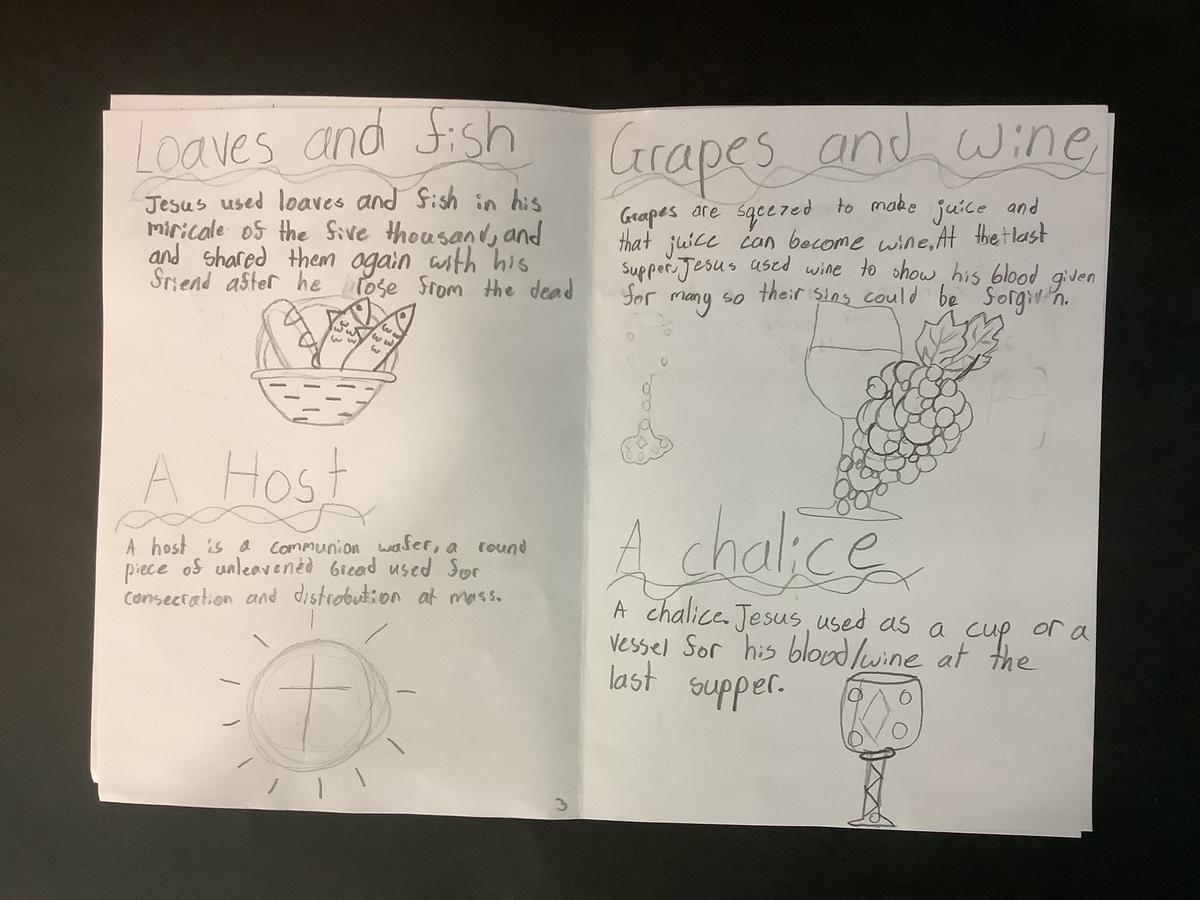 Loaves and fish
Jesus used loaves and fish in his
miricale of the five thousand, and
and shared them again with his
friend after he rose from the dead
A Host
A host is a communion wafer, a round
piece of unleavened bread used for
consecration and distrobution at mass.
3
Grapes and wine
Grapes are sqeezed to make juice and
that juice can become wine. At the last
supper Jesus used wine to show his blood given
for many so their sins could be forgivn.
A chalice
A chalice. Jesus used as a cup or a
vessel for his blood/wine at the
last supper.